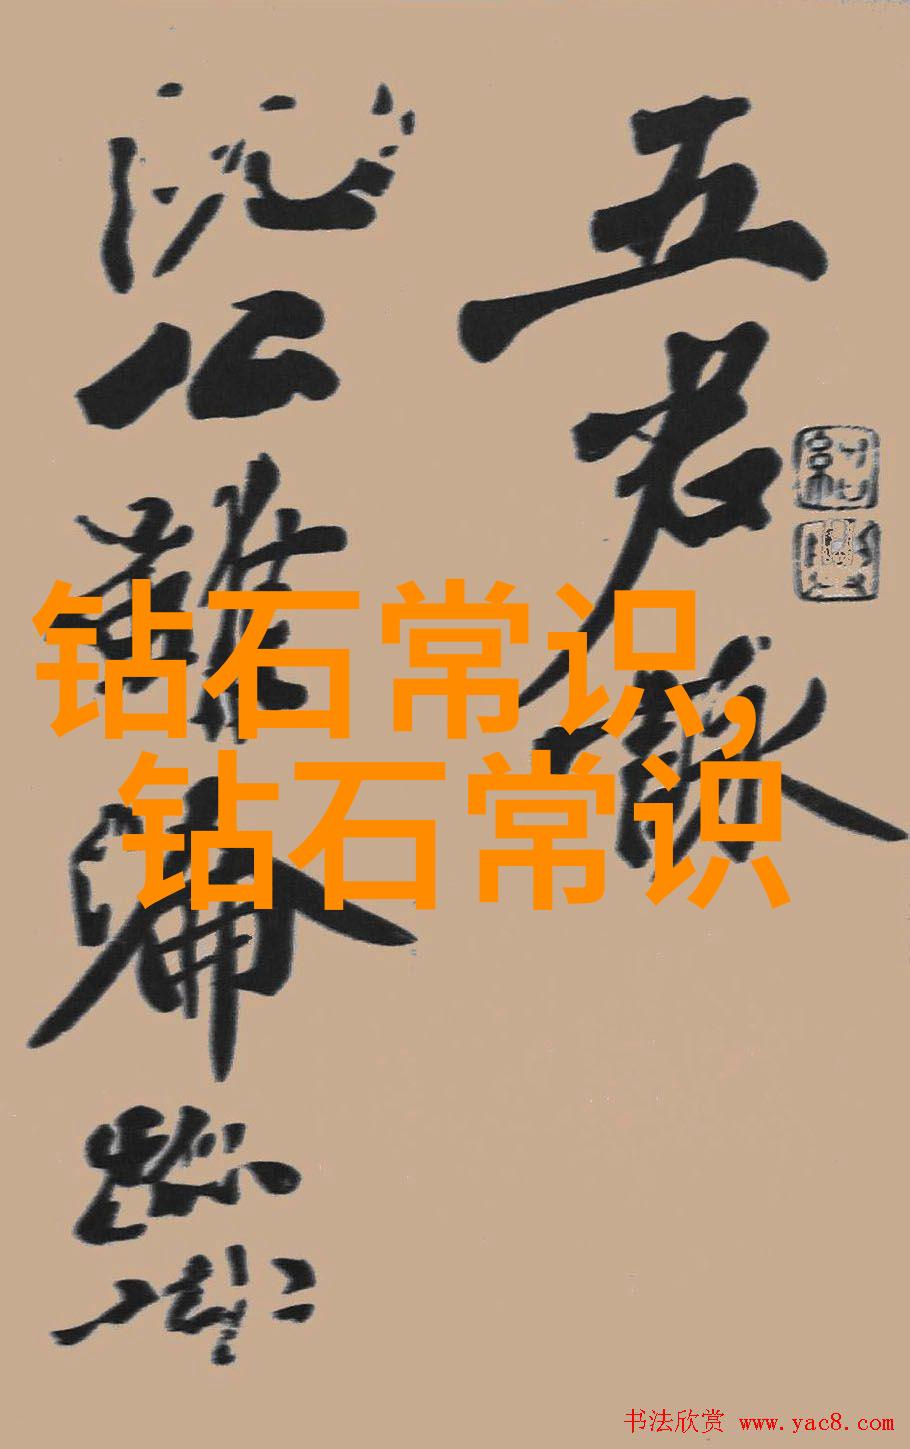 五君詠
阮公雖淪跡
钻石常识,
钻石常识
书法欣赏 www.yac8.com